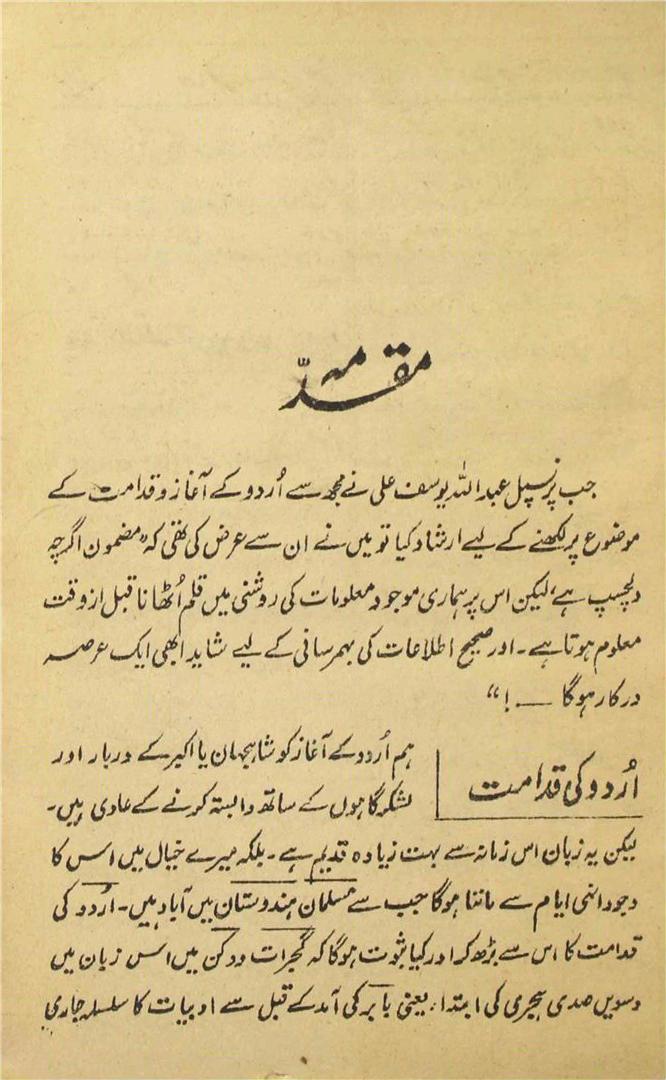 مقدمہ
جب پرنسپل عبداللہ یوسف علی نے مجھ سے اُردو کے آغاز و قدامت کے
موضوع پر لکھنے کے لیے ارشاد کیا تو میں نے ان سے عرض کی تھی کہ "مضمون اگرچہ
دلچسپ ہے، لیکن اس پر ہماری موجودہ معلومات کی روشنی میں قلم اُٹھانا قبل از وقت
معلوم ہوتا ہے۔ اور صحیح اطلاعات کی بہمرسانی کے لیے شاید ابھی ایک عرصہ
درکار ہوگا ــــ !"
اُردو کی قدامت
ہم اُردو کے آغاز کو شاہجہان یا اکبر کے دربار اور
لشکر گاہوں کے ساتھ وابستہ کرنے کے عادی ہیں۔
لیکن یہ زبان اس زمانہ سے بہت زیادہ قدیم ہے۔ بلکہ میرے خیال میں اس کا
وجود انہی ایام سے ماننا ہوگا جب سے مسلمان ہندوستان میں آباد ہیں۔ اُردو کی
قدامت کا اس سے بڑھ کر اور کیا ثبوت ہوگا کہ گجرات و دکن میں اس زبان میں
دسویں صدی ہجری کی ابتداء یعنی بابر کی آمد کے قبل سے ادبیات کا سلسلہ جاری